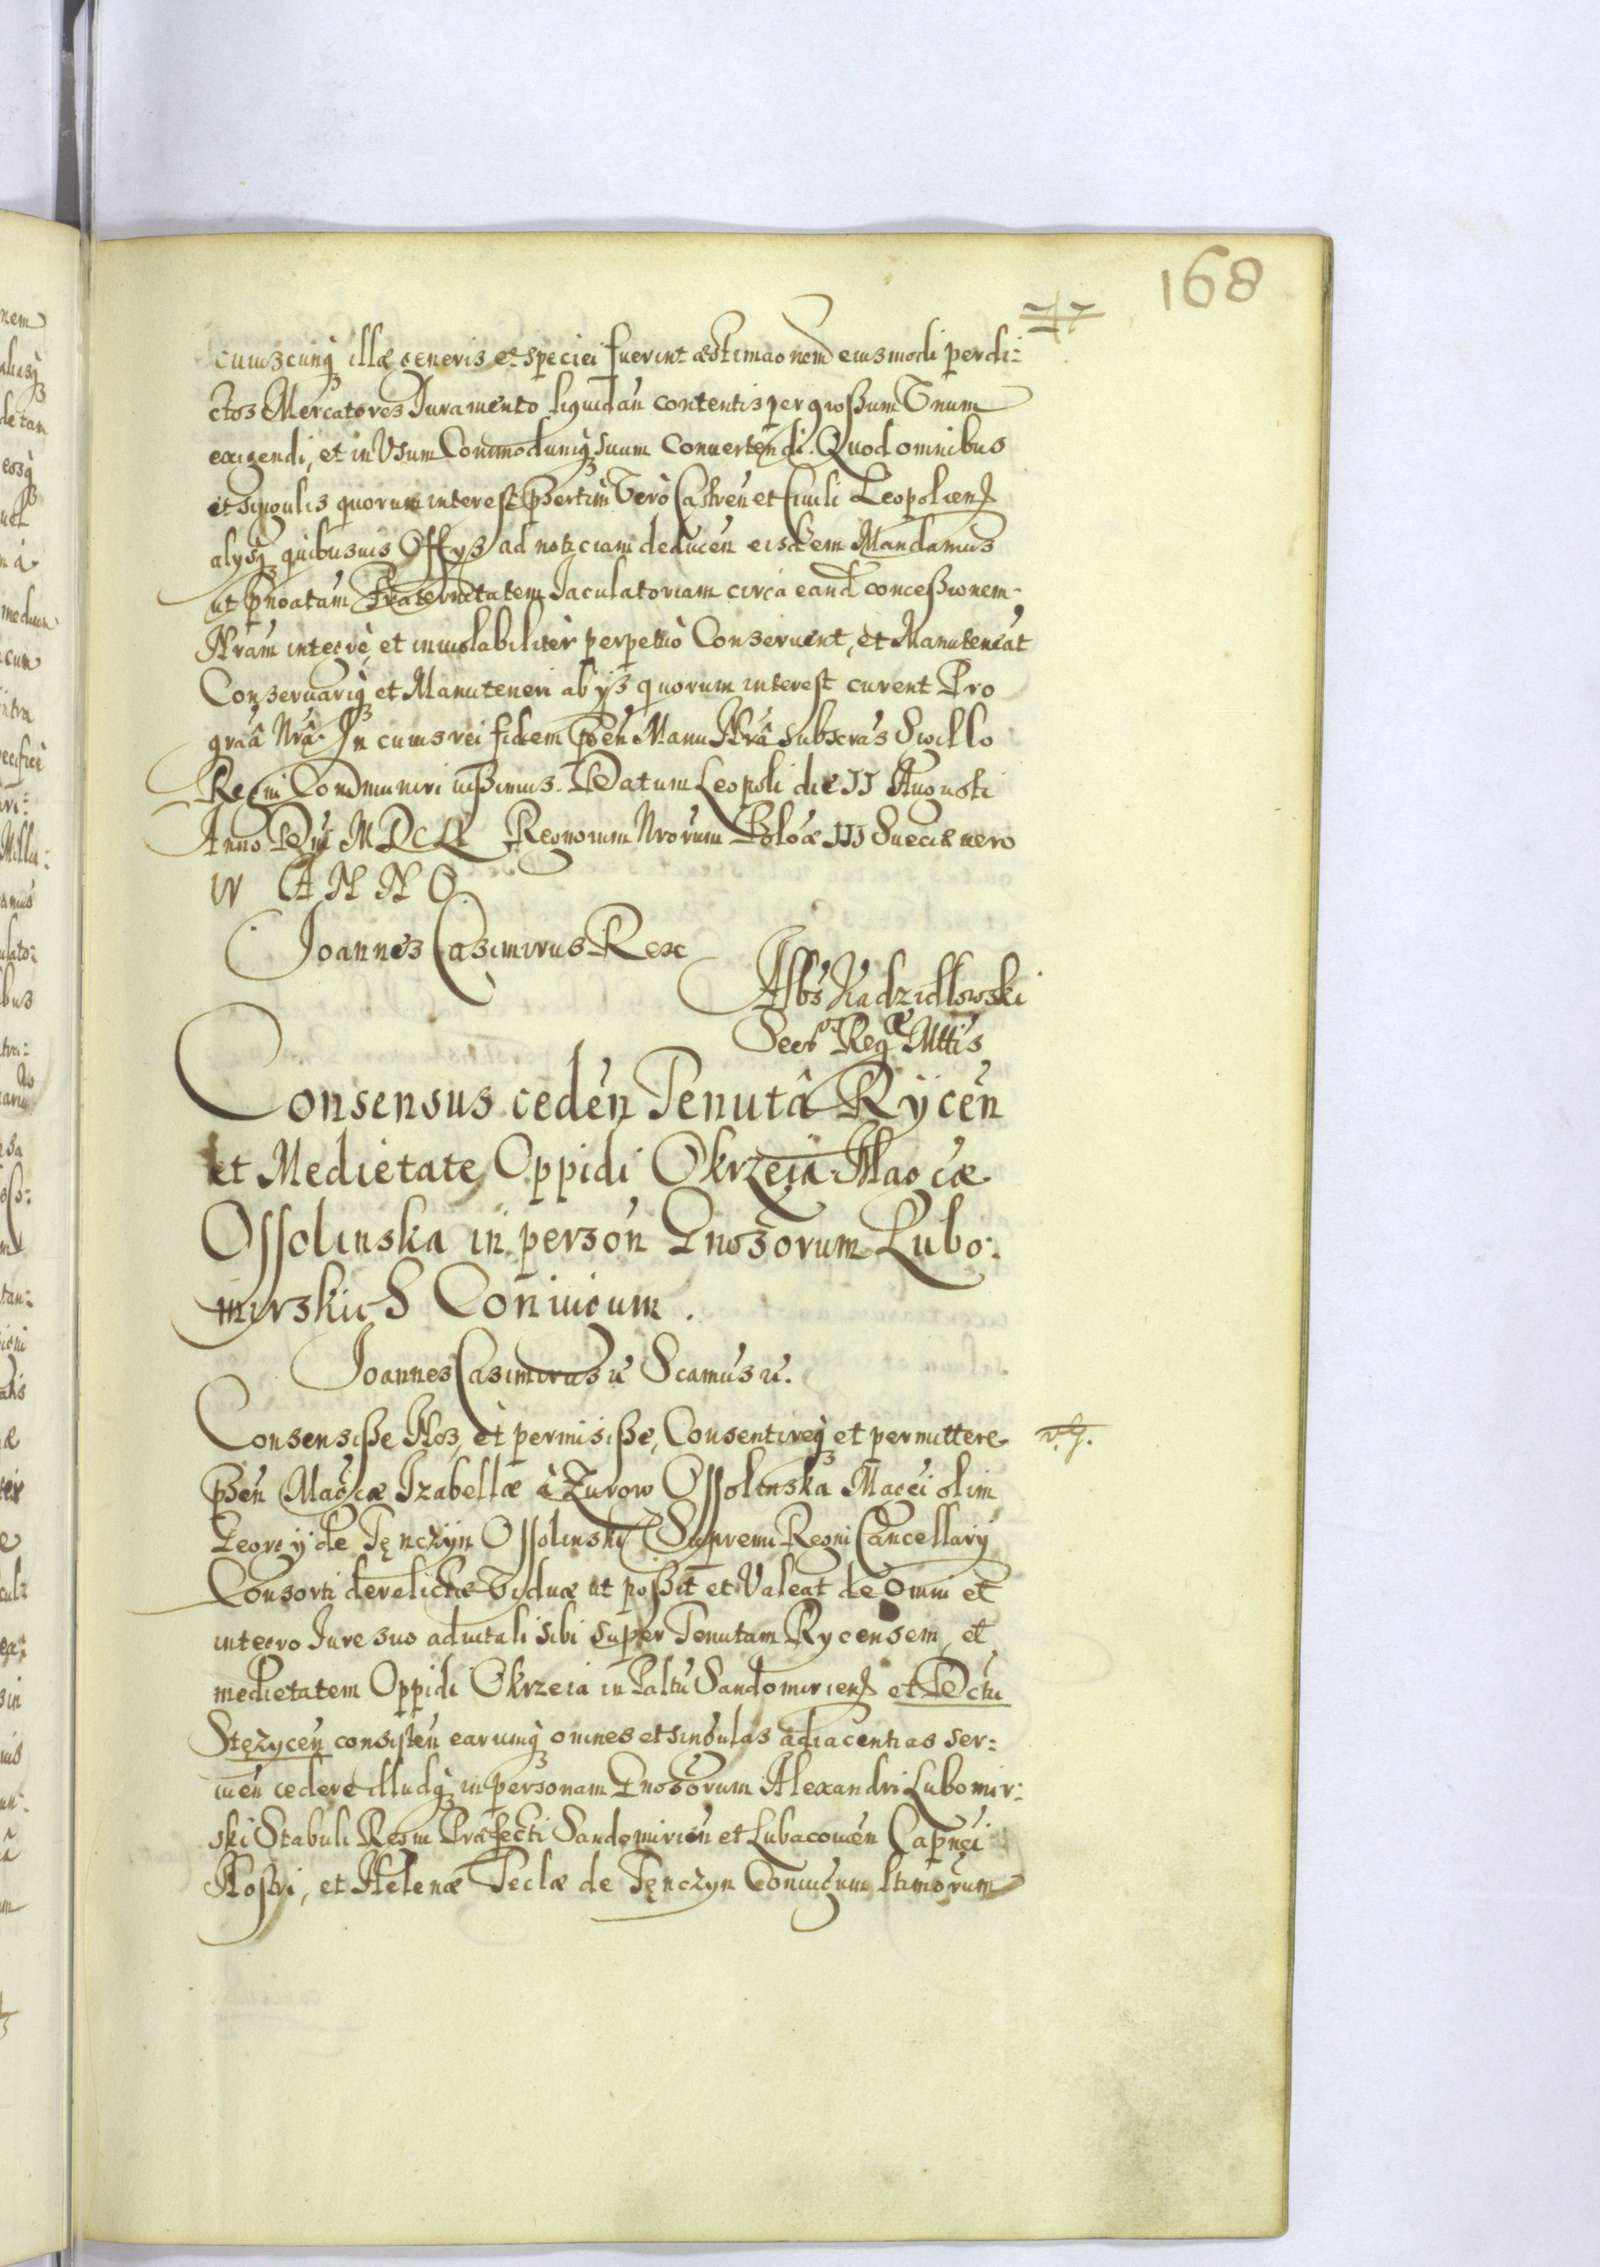 168
cuiuscunq̃ illæ generis et speciei fuerint æstimaõnem eiusmodi per di-
ctos Mercatores Iuramento liquidañ contentis per grossum Vnum
exigendi, et in Vsum Commodumq̃ suum Conuertendi. Quod omnibus
et singulis quorum interest p̃sertim Verò Castreñ et Ciuili Leopolien̄
alysq̃ quibusuis Offys ad noticiam deduceñ eisdem Mandamus
ut p̃noatam Fraternitatem Iaculatoriam circa eand concessionem
Nram integrè, et inuiolabiliter perpetuò Conseruent, et Manuteneãt
Conseruariq̃ et Manuteneri ab ijs quorum interest curent Pro
graâ Nrâ. In cuius rei fidem p̃señ Manu Nrâ Subscras Sigillo
Regni Communiri iussimus. Datum Leopoli die II Augusti
Anno Dnj MDCLI Regnorum Nrorum Poloæ III Sueciæ uero
IV ANNO
Joannes Casimirus Rex
Albs Kadzidlowski
Secr Reg Mttis
Consensus cedeñ Tenutâ Rÿceñ
et Medietate Oppidi Okrzeia Magcæ
Ossolinska in persoñ Gnosorum Lubo-
mirskich Coniugum.
Joannes Casimirus ũ Scamus ũ.
Consensisse Nos, et permisisse, Consentireq̃ et permittere
v. g.
p̃señ Magcæ Izabellæ à Zurow Ossolinska Magci olim
Georgÿ de Tęnczÿn Ossolinski Supremi Regni Cancellarÿ
Consorti derelictæ Viduæ ut possit et Valeat de Omni et
integro Iure suo aduitali sibi super Tenutam Rycensem, et
medietatem Oppidi Okrzeia in Paltu Sandomirien̄ et Dctu
Stęzyceñ consisteñ earumq̃ omnes et singulas adiacentias ser-
uieñ cedere illudq̃ in personam Gnosorum Alexandri Lubomir-
ski Stabuli Regni Præfecti Sandomirieñ et Lubacouieñ Capnei
Nostri, et Helenæ Teclæ de Tęnczyn Coniugum ltimorum